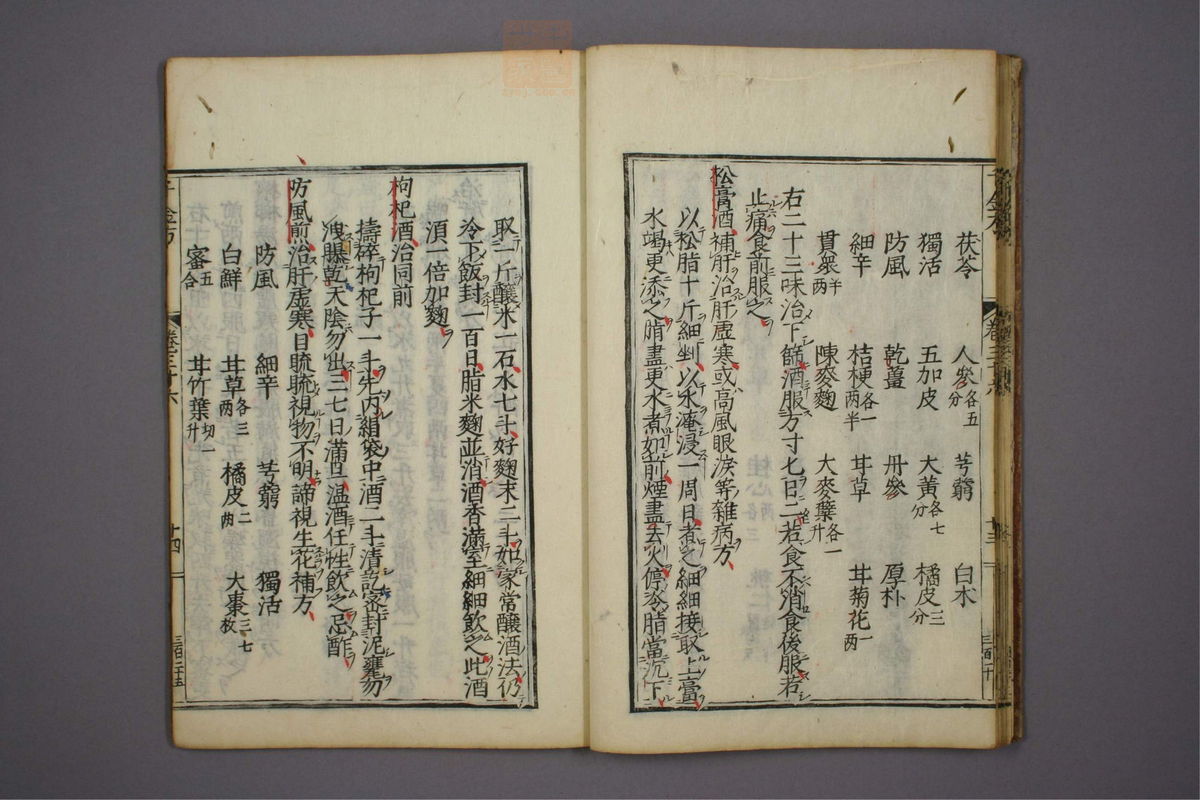 茯苓 人參各五分 芎藭 白朮
獨活 五加皮 大黃各七分 橘皮三分
防風 乾薑 丹參 厚朴
細辛 桔梗各一兩半 甘草 甘菊花一兩
貫衆半兩 陳麥麴 大麥蘗各一升
右二十三味治下篩酒服方寸匕日二若食不消食後服若
止痛食前服之
松膏酒補肝治肝虛寒或高風眼淚等雜病方
以松脂十斤細剉以水淹浸一周日煮之細細接取上膏
水竭更添之脂盡更水煮如前煙盡去火停冷脂當沉下
取一斤釀米一石水七斗好麴末二斗如家常釀酒法仍
冷下飯封一百日脂米麴並消酒香滿室細細飲之此酒
須一倍加麴
枸杞酒治同前
擣碎枸杞子一斗先內絹袋中酒二斗漬訖密封泥甕勿
洩曝乾天陰勿出三七日滿旦溫酒任性飲之忌酢
防風煎治肝虛寒目䀮䀮視物不明諦視生花補方
防風 細辛 芎藭 獨活
白鮮 甘草各三兩 橘皮二兩 大棗三七枚
蜜五合 甘竹葉切一升
千金方 卷三十六 十四 三百二十五